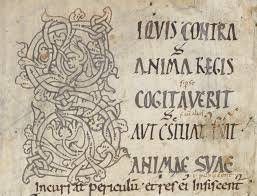 SIQVIS CONTRA
ANIMA REGIS
COGITAVERIT
AVT CSILIAT
ANIMAE SVAE
Incurrat periculū et res ei infiscent